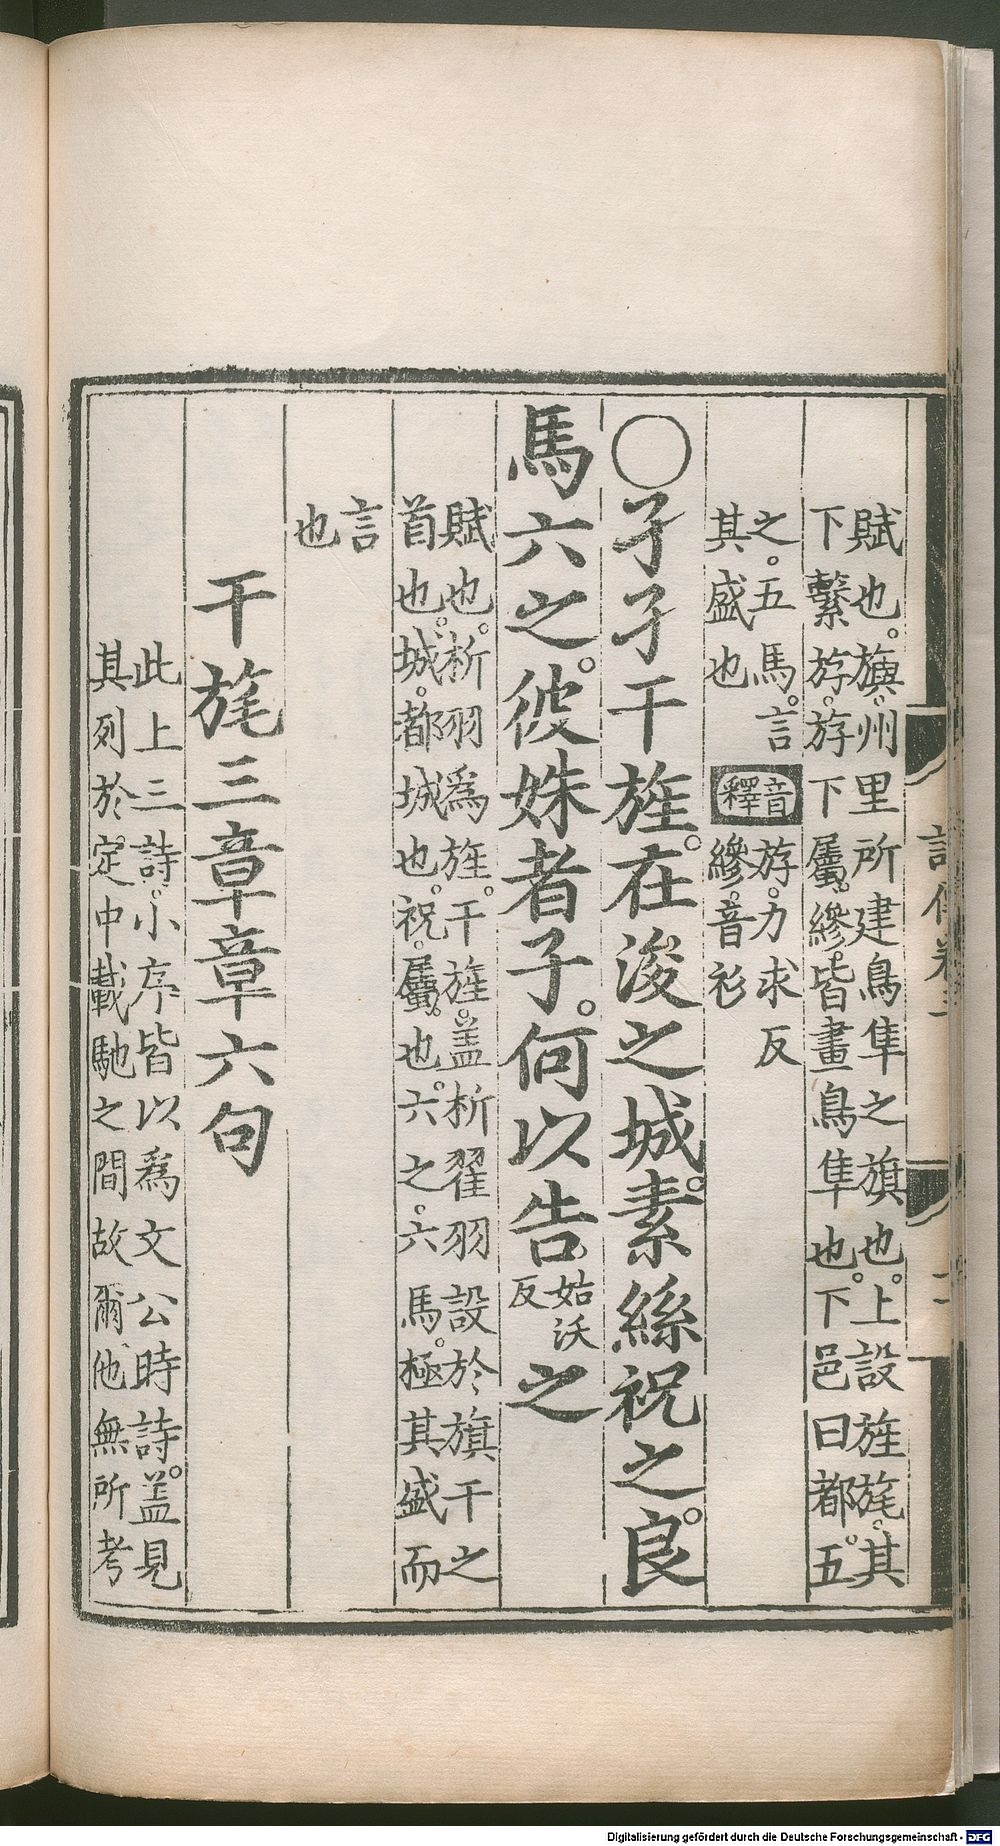 賦也。旟。州里所建鳥隼之旗也。上設旌旄。其
下繫斿。斿下屬縿。皆畫鳥隼也。下邑曰都。五
之。五馬。言
其盛也
音釋
斿。力求反
縿。音衫
○孑孑干旌。在浚之城。素絲祝之。良
馬六之。彼姝者子。何以告
姑沃
反
之
賦也。析羽爲旌。干旌。盖析翟羽設於旗干之
首也。城。都城也。祝。屬也。六之。六馬。極其盛而
言
也
干旄三章章六句
此上三詩。小序皆以爲文公時詩。盖見
其列於定中載馳之間故爾。他無所考
Digitalisierung gefördert durch die Deutsche Forschungsgemeinschaft - DFG